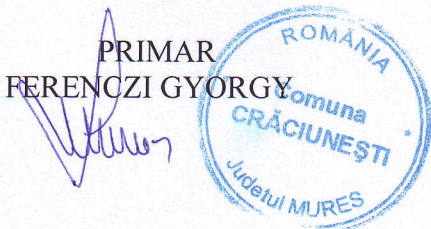 PRIMAR
FERENCZI GYORGY
ROMÂNIA
Comuna
CRĂCIUNEŞTI
Judeţul MUREŞ